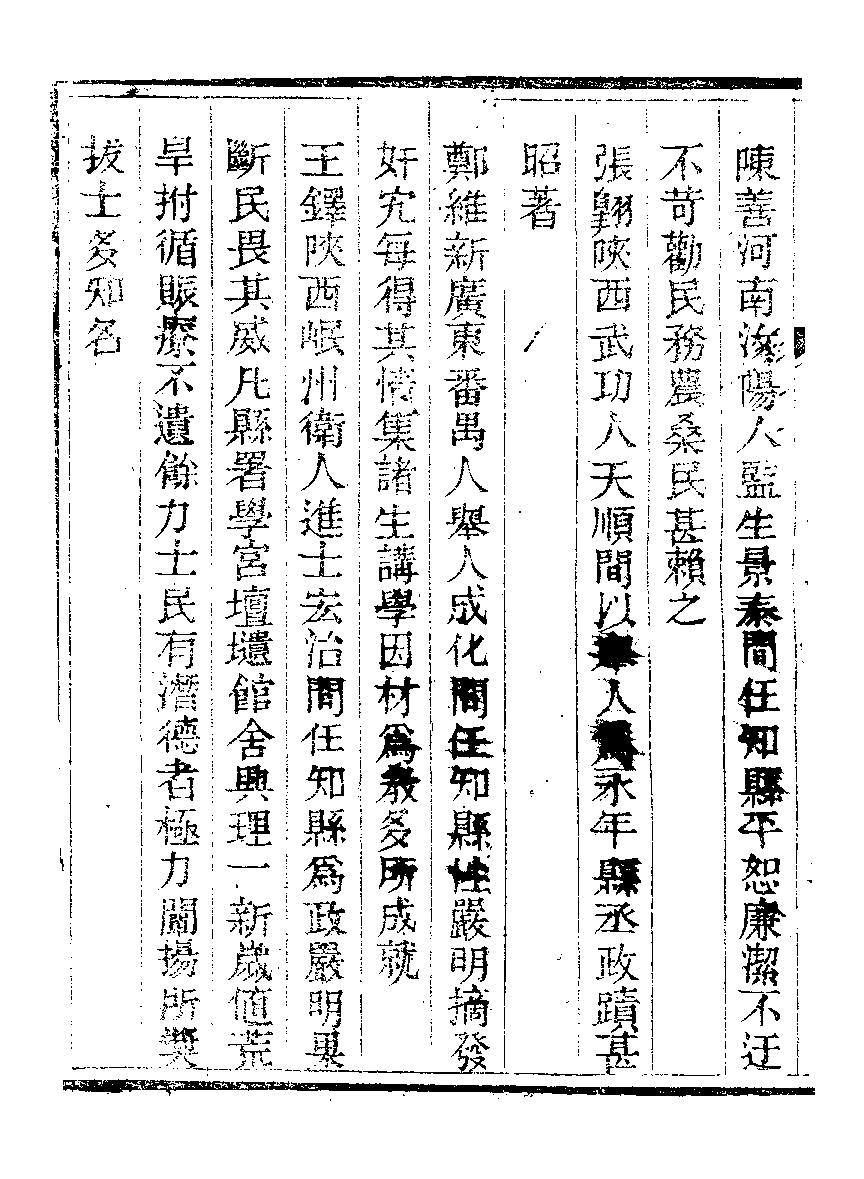 陳善河南洧陽人監生景泰間任知縣平恕廉潔不迂
不苛勸民務農桑民甚賴之
張翱陝西武功人天順間以舉人爲永年縣丞政蹟甚
昭著
鄭維新廣東番禺人舉人成化間任知縣性嚴明摘發
奸宄每得其情集諸生講學因材爲教多所成就
王鐸陝西岷州衛人進士宏治間任知縣爲政嚴明果
斷民畏其威凡縣署學宮壇壝館舍興理一新歲値荒
旱拊循賑療不遺餘力士民有潛德者極力闡揚所奬
拔士多知名